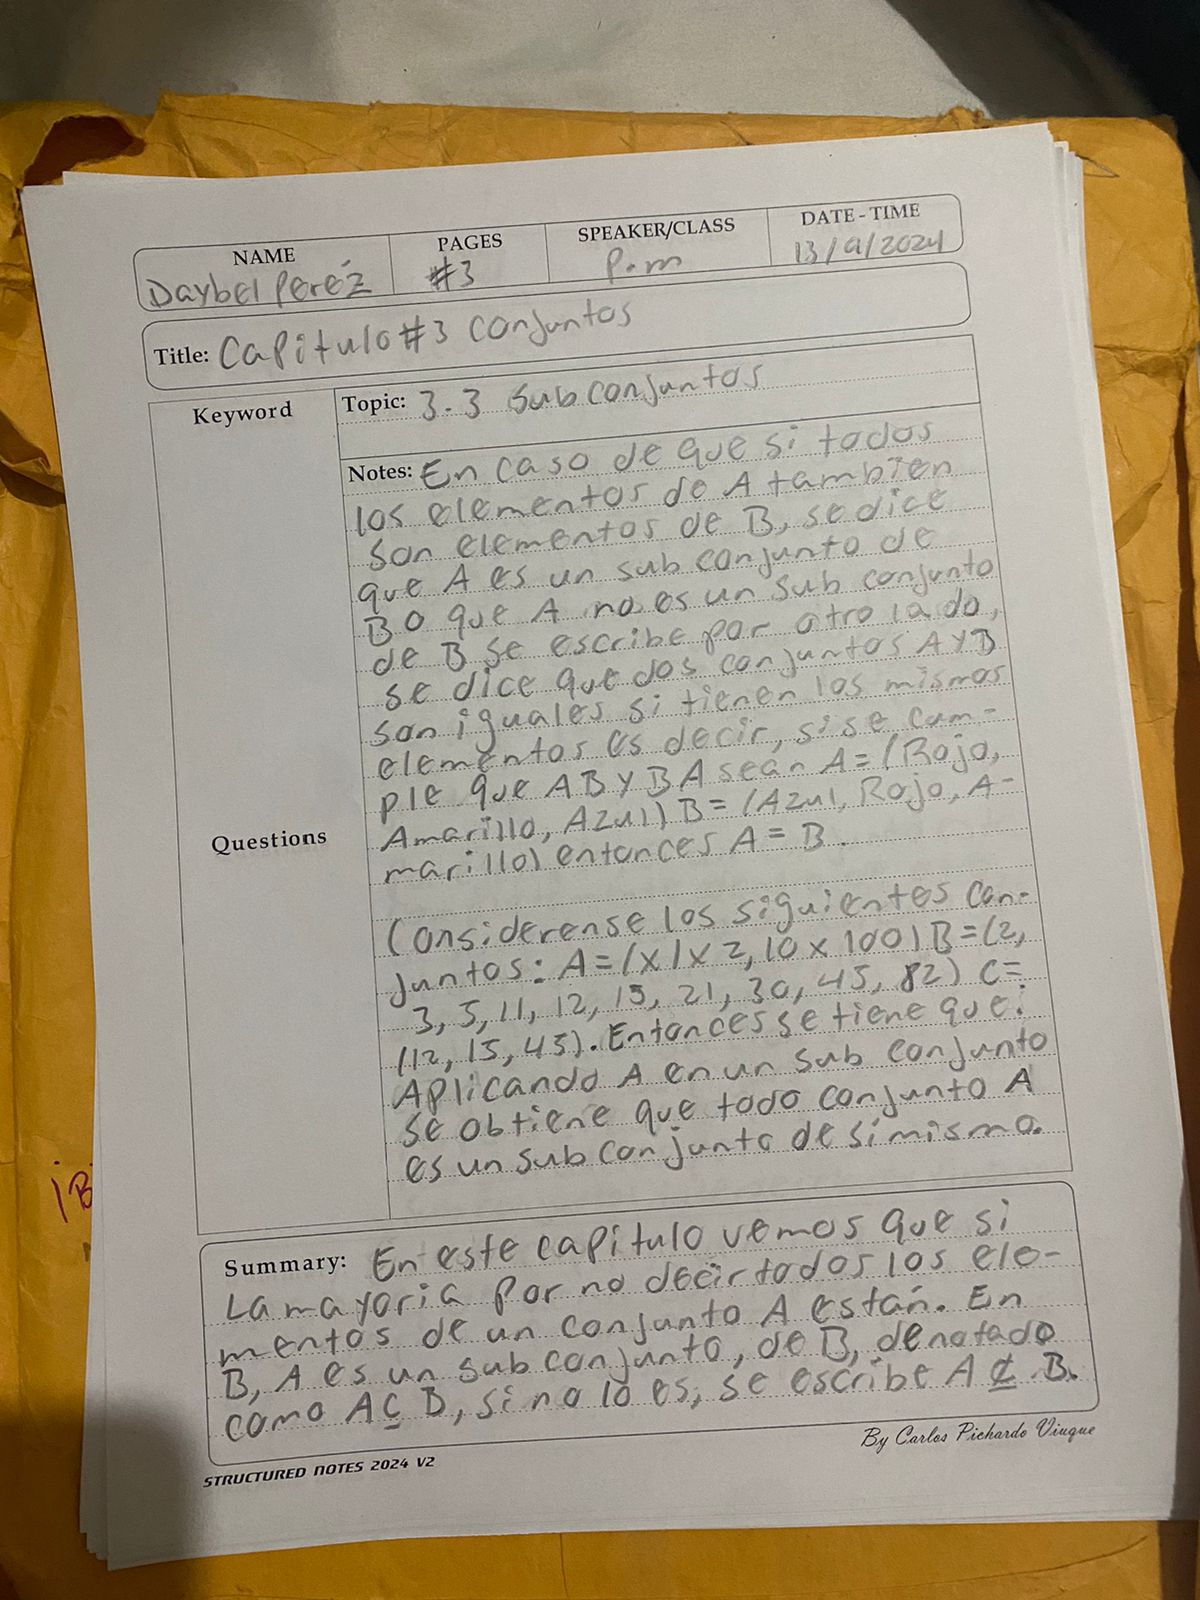 NAME PAGES SPEAKER/CLASS DATE - TIME
Daybel Pereź #3 P.m 13/9/2024
Title: Capitulo #3 conjuntos
Keyword
Topic: 3.3 Sub conjuntos
Notes: En caso de que si todos
los elementos de A tambien
son elementos de B, se dice
que A es un sub conjunto de
B o que A no es un sub conjunto
de B se escribe por otro lado,
se dice que dos conjuntos A y B
son iguales si tienen los mismos
elementos es decir, si se cum-
ple que AB y BA sean A = (Rojo,
Amarillo, Azul) B = (Azul, Rojo, A-
marillo) entonces A = B.
Questions
Considerense los siguientes con-
juntos: A = (x/x 2, 10 x 100) B = (2,
3, 5, 11, 12, 15, 21, 30, 45, 82) C =
(12, 15, 45). Entonces se tiene que:
Aplicando A en un sub conjunto
se obtiene que todo conjunto A
es un sub conjunto de si mismo.
Summary: En este capitulo vemos que si
La mayoria por no decir todos los ele-
mentos de un conjunto A están. En
B, A es un sub conjunto, de B, denotado
como A ⊆ B, si no lo es, se escribe A ⊈ B.
By Carlos Pichardo Viuque
STRUCTURED NOTES 2024 V2
¡B